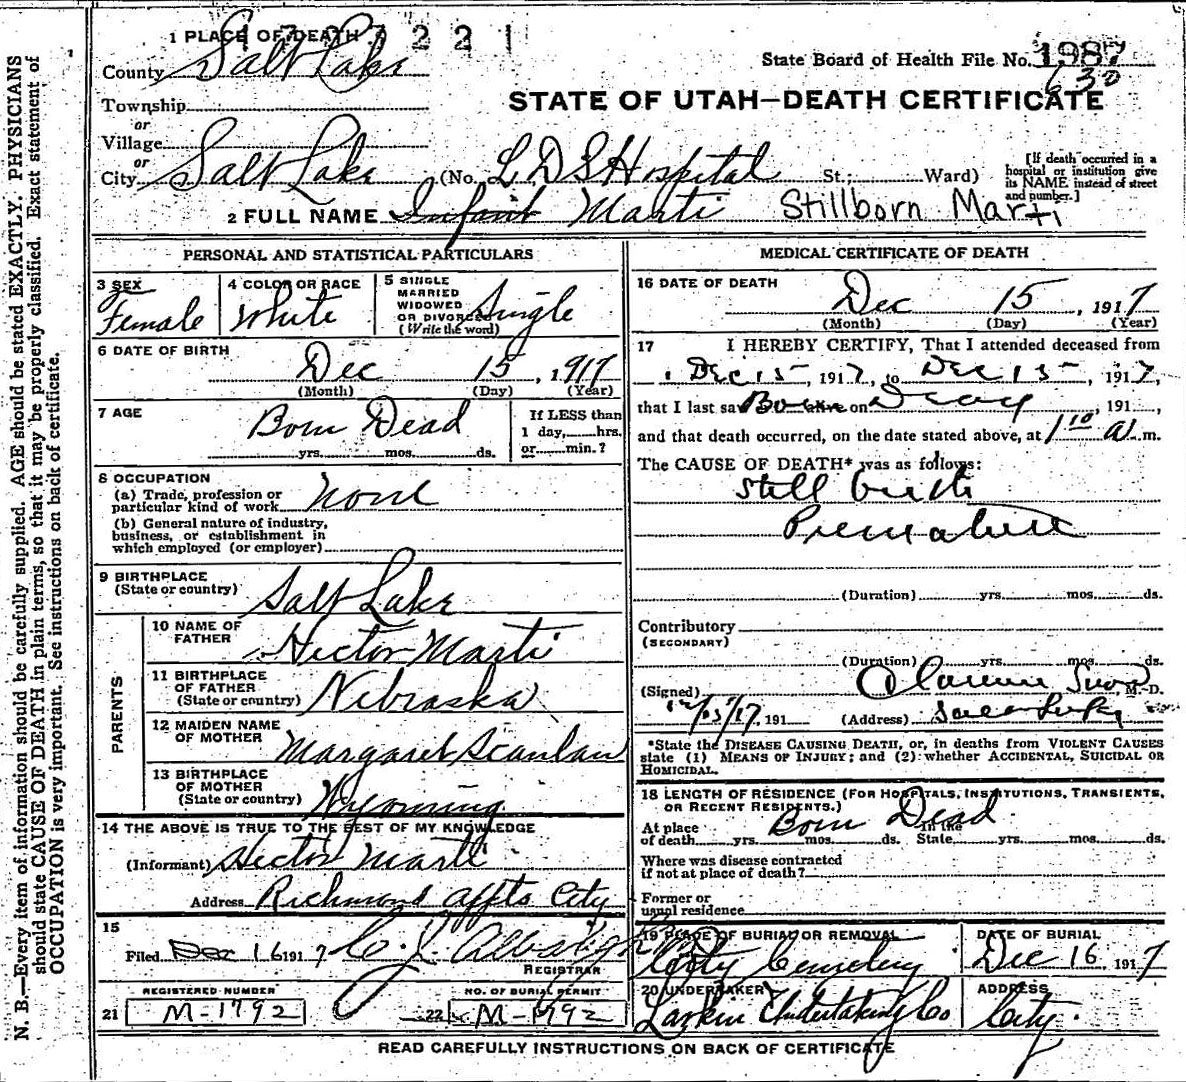 N. B.—Every item of information should be carefully supplied. AGE should be stated EXACTLY. PHYSICIANS
should state CAUSE OF DEATH in plain terms, so that it may be properly classified. Exact statement of
OCCUPATION is very important. See instructions on back of certificate.
1 PLACE OF DEATH
221
County Salt Lake
State Board of Health File No. 1987
630
Township
or
STATE OF UTAH—DEATH CERTIFICATE
Village
or
City Salt Lake (No. L D S Hospital St.; Ward)
[If death occurred in a
hospital or institution give
its NAME instead of street
and number.]
2 FULL NAME Infant Marti Stillborn Marti
PERSONAL AND STATISTICAL PARTICULARS
3 SEX
Female
4 COLOR OR RACE
White
5 SINGLE
MARRIED
WIDOWED
OR DIVORCED
(Write the word)
Single
6 DATE OF BIRTH
Dec 15, 1917
(Month) (Day) (Year)
7 AGE
Born Dead
yrs. mos. ds.
If LESS than
1 day, hrs.
or min.?
8 OCCUPATION
(a) Trade, profession or
particular kind of work None
(b) General nature of industry,
business, or establishment in
which employed (or employer)
9 BIRTHPLACE
(State or country)
Salt Lake
PARENTS
10 NAME OF
FATHER
Hector Marti
11 BIRTHPLACE
OF FATHER
(State or country)
Nebraska
12 MAIDEN NAME
OF MOTHER
Margaret Scanlan
13 BIRTHPLACE
OF MOTHER
(State or country)
Wyoming
14 THE ABOVE IS TRUE TO THE BEST OF MY KNOWLEDGE
(Informant) Hector Marti
Address Richmond Appts City
15
Filed Dec 16 1917
REGISTRAR
REGISTERED NUMBER
21 M-1792
NO. OF BURIAL PERMIT
22 M-1792
MEDICAL CERTIFICATE OF DEATH
16 DATE OF DEATH
Dec 15, 1917
(Month) (Day) (Year)
17 I HEREBY CERTIFY, That I attended deceased from
Dec 15, 1917, to Dec 15, 1917,
that I last saw Born alive on Dead, 191 ,
and that death occurred, on the date stated above, at 1 10 a. m.
The CAUSE OF DEATH* was as follows:
Still birth
Premature
(Duration) yrs. mos. ds.
Contributory
(SECONDARY)
(Duration) yrs. mos. ds.
(Signed) Clarence Snow M.D.
12/15/17, 191 (Address)
*State the DISEASE CAUSING DEATH, or, in deaths from VIOLENT CAUSES
state (1) MEANS OF INJURY; and (2) whether ACCIDENTAL, SUICIDAL OR
HOMICIDAL.
18 LENGTH OF RESIDENCE (FOR HOSPITALS, INSTITUTIONS, TRANSIENTS,
OR RECENT RESIDENTS.)
Born Dead
At place In the
of death yrs. mos. ds. State yrs. mos. ds.
Where was disease contracted
if not at place of death?
Former or
usual residence
19 PLACE OF BURIAL OR REMOVAL
City Cemetery
DATE OF BURIAL
Dec 16, 1917
20 UNDERTAKER
Larkin Undertaking Co
ADDRESS
City.
READ CAREFULLY INSTRUCTIONS ON BACK OF CERTIFICATE